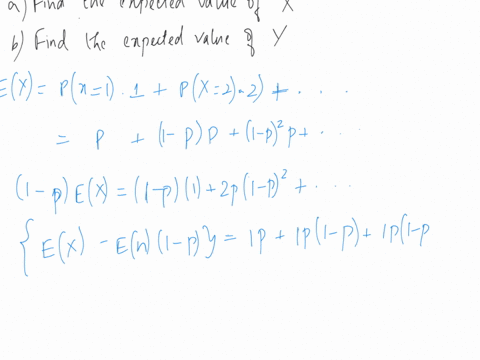 a) Find the expected value of X
b) Find the expected value of Y
E(X) = P(x=1) · 1 + P(X=2) · 2) + · · ·
= p + (1-p)p + (1-p)²p + · · ·
(1-p)E(X) = (1-p)(1) + 2p(1-p)² + · · ·
{ E(X) - E(n)(1-p)} = 1p + 1p(1-p) + 1p(1-p